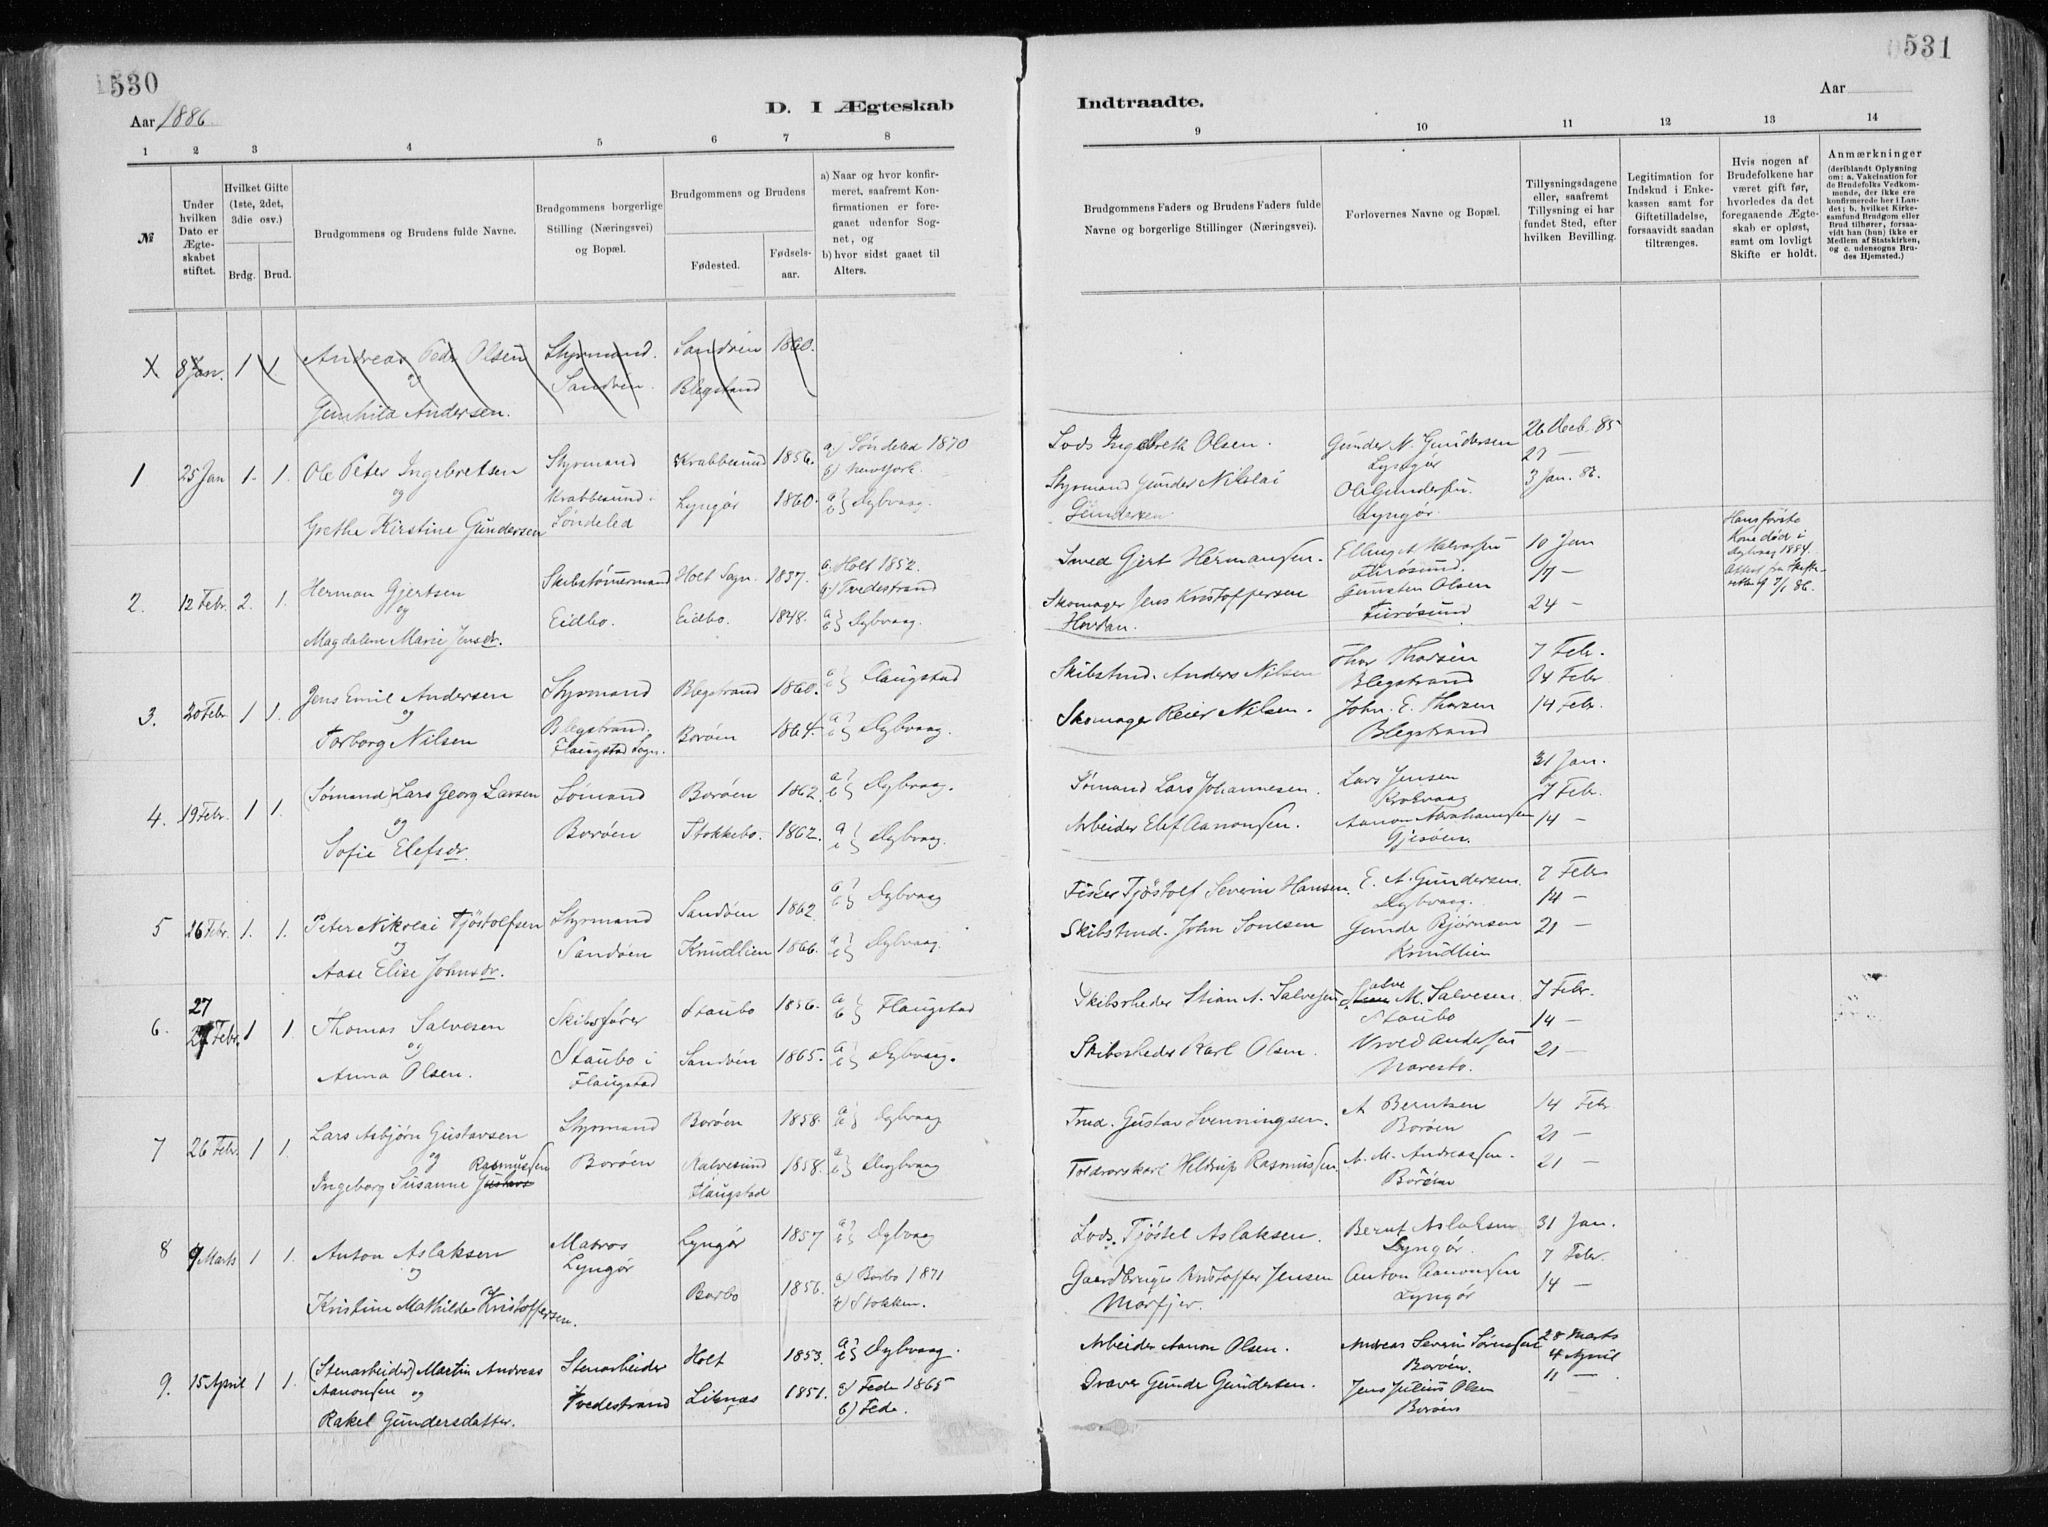 530
Aar 1886.
D. I Ægteskab
1 2 3 4 5 6 7 8
№
Under hvilken Dato er Ægteskabet stiftet.
Hvilket Gifte (1ste, 2det, 3die osv.)
Brdg. Brud.
Brudgommens og Brudens fulde Navne.
Brudgommens borgerlige Stilling (Næringsvei) og Bopæl.
Brudgommens og Brudens
Fødested. Fødselsaar.
a) Naar og hvor konfirmeret, saafremt Konfirmationen er foregaaet udenfor Sognet, og
b) hvor sidst gaaet til Alters.
X 8 Jan. 1 1 Andreas Peder Olsen Styrmand. Sandøen 1860.
og Sandøen. Blegstrand
Gunhild Andersen.
1 25 Jan 1. 1. Ole Peter Ingebretsen Styrmand Krabbesund 1856. a) Søndeled 1870
b) Newyork.
og Krabbesund i Lyngør 1860. a) b) } Dybvaag.
Grethe Kirstine Gundersen Søndeled
2. 12 Febr. 2. 1. Herman Gjertsen Skibstømmermand Holt Sogn. 1837. a. Holt 1852.
b) Tvedestrand
og Eidbo. Eidbo. 1848. a b } Dybvaag.
Magdalene Marie Jensdr.
3. 20 Febr 1 1. Jens Emil Andersen Styrmand Blegstrand 1860. a) b) } Flaugstad
og Blegstrand. Borøen 1864. a) b) } Dybvaag.
Torborg Nilsen Flaugstad Sogn.
4. 19 Febr. 1 1. (Sømand) Lars Georg Larsen Sømand Borøen 1862. a) b) } Dybvaag.
og Borøen Stokkebo. 1862. a) b) } Dybvaag.
Sofie Elefsdr.
5 26 Febr. 1. 1. Peter Nikolai Tjøstolfsen Styrmand Sandøen 1862. a) b) } Dybvaag
og Sandøen Knudlien 1866. a) b) } Dybvaag.
Aase Elise Johnsdr.
27
6. 27 Febr. 1 1 Thomas Salvesen Skibsfører Staubo 1856. a) b) } Flaugstad
og Staubo i Sandøen 1865. a) b) } Dybvaag.
Anna Olsen. Flaugstad
7 26 Febr. 1 1. Lars Asbjørn Gustavsen Styrmand Borøen 1858. a) b) } Dybvaag
og Rasmussen Borøen Kalvesund 1858. a) b) } Dybvaag
Ingeborg Susanne Gustavs Flaugstad
8 9 Marts 1 1. Anton Aslaksen Matros Lyngør 1857 a) b) } Dybvaag
og Lyngør Barbo 1856. a) Barbo 1871
Kristine Mathilde Kristoffersen. b) Stokken.
9. 15 April 1 1. (Stenarbeider) Martin Andreas Stenarbeider Holt 1853. a) b) } Dybvaag.
Aanonsen og Tvedestrand Liknæs 1851. a) Fede 1865
Rakel Gundersdatter. b) Fede.
531
Indtraadte.
Aar
9 10 11 12 13 14
Brudgommens Faders og Brudens Faders fulde Navne og borgerlige Stillinger (Næringsvei).
Forlovernes Navne og Bopæl.
Tillysningsdagene eller, saafremt Tillysning ei har fundet Sted, efter hvilken Bevilling.
Legitimation for Indskud i Enkekassen samt for Giftetilladelse, forsaavidt saadan tiltrænges.
Hvis nogen af Brudefolkene har været gift før, hvorledes da det foregaaende Ægteskab er opløst, samt om lovligt Skifte er holdt.
Anmærkninger (deriblandt Oplysning om: a. Vakcination for de Brudefolks Vedkommende, der ikke ere konfirmerede her i Landet; b. hvilket Kirkesamfund Brudgom eller Brud tilhører, forsaavidt han (hun) ikke er Medlem af Statskirken, og c. udensogns Brudes Hjemsted.)
Lods Ingebreth Olsen. Gunder N. Gundersen 26 Decb. 85
Lyngør 27 —
Styrmand Gunder Nikolai Ole Gundersen 3 Jan. 86.
Gundersen Lyngør.
Smed Gjert Hermansen. Halvorsen 10 Jan
Furøsund. 17 —
Skomager Jens Kristoffersen Gunsten Olsen 24 —
Hovdan. Furøsund.
Hans første Kone død i Dybvaag 1884.
Skibstmd. Anders Nilsen Thor Thorsen 7 Febr.
Blegstrand 14 Febr
Skomager Reier Nilsen. John. E. Thorsen 14 Febr.
Blegstrand
31 Jan.
Sømand Lars Johannesen. Lars Jensen 7 Febr.
Krokvaag
Arbeider Elef Aanonsen. Aanon Abrahamsen 14 —
Gjesøen.
Fisker Tjøstolf Severin Hansen. E. A. Gundersen. 7 Febr
Dybvaag. 14 —
Skibstmd. John Sonesen Gunder Bjørnsen 21 —
Knudlien
Skibsrheder Stian A. Salvesen Salve M. Salvesen 7 Febr.
Staubo 14 —
Skibsrheder Karl Olsen. Andersen 21 —
Naresto.
Tmd. Gustav Svenningsen. A Berntsen 14 Febr
Borøen 21 —
Toldrorskarl Heltrup Rasmussen A. M. Andreassen. 21 —
Borøen
Lods. Tjøstel Aslaksen. Bernt Aslaksen 31 Jan.
Lyngør. 7 Febr.
Gaardbruger Kristoffer Jensen Anton Aanonsen 14 —
Morfjer. Lyngør
Arbeider Aanon Olsen. Andreas Severin Sørensen 28 Marts
Borøen. 4 April
Graver Gunder Gundersen. Jens Julius Olsen 11 —
Borøen